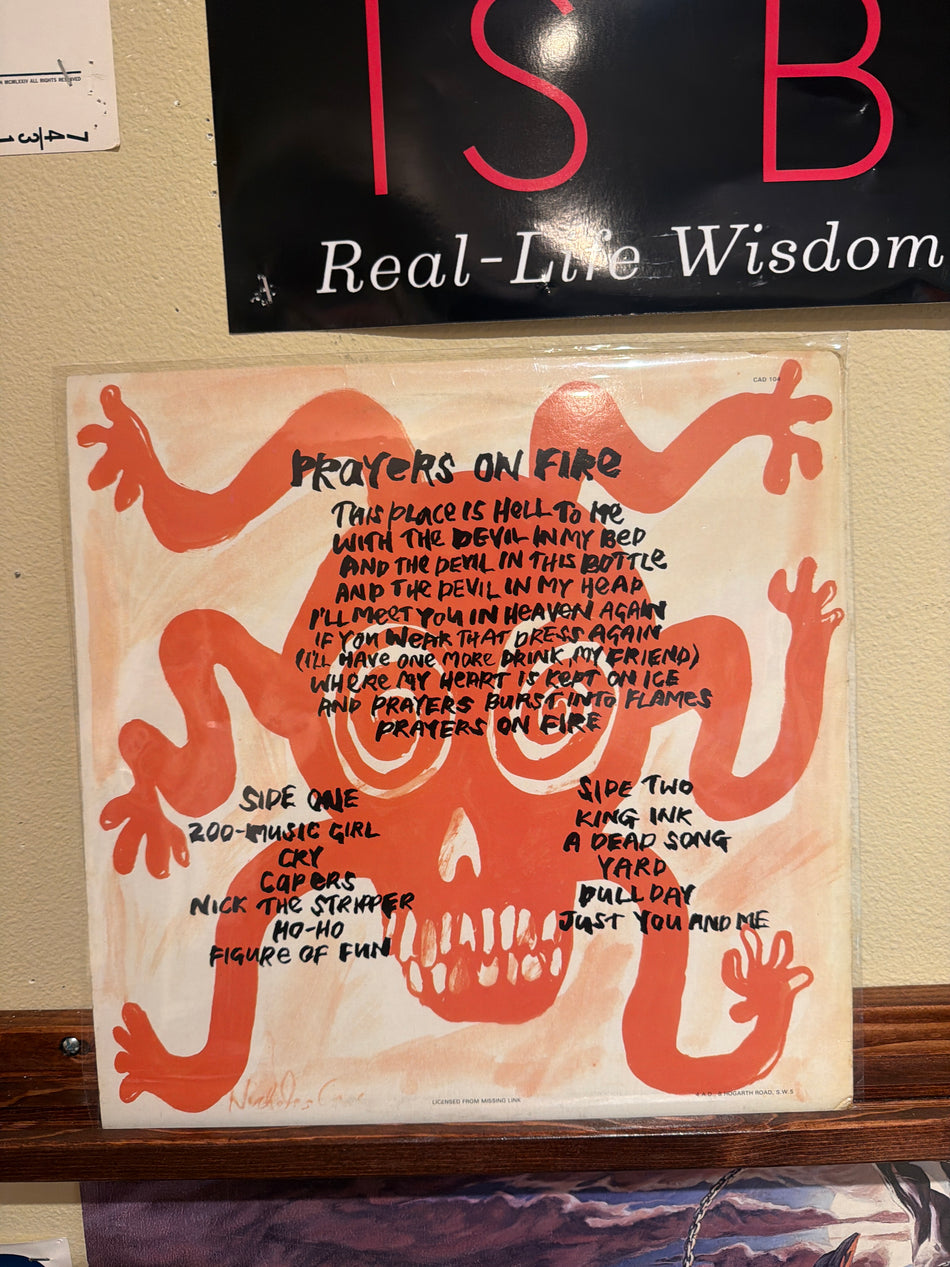 MCMLXXIV ALL RIGHTS RESERVED
7 4 3 1
IS B
Real-Life Wisdom
CAD 104
PRAYERS ON FIRE
THIS PLACE IS HELL TO ME
WITH THE DEVIL IN MY BED
AND THE DEVIL IN THIS BOTTLE
AND THE DEVIL IN MY HEAD
I'LL MEET YOU IN HEAVEN AGAIN
IF YOU WEAR THAT DRESS AGAIN
(I'LL HAVE ONE MORE DRINK, MY FRIEND)
WHERE MY HEART IS KEPT ON ICE
AND PRAYERS BURST INTO FLAMES
PRAYERS ON FIRE
SIDE ONE
ZOO-MUSIC GIRL
CRY
CAPERS
NICK THE STRIPPER
HO-HO
FIGURE OF FUN
SIDE TWO
KING INK
A DEAD SONG
YARD
DULL DAY
JUST YOU AND ME
Nicholas Cave
LICENSED FROM MISSING LINK
4 A.D., 8 HOGARTH ROAD, S.W.5